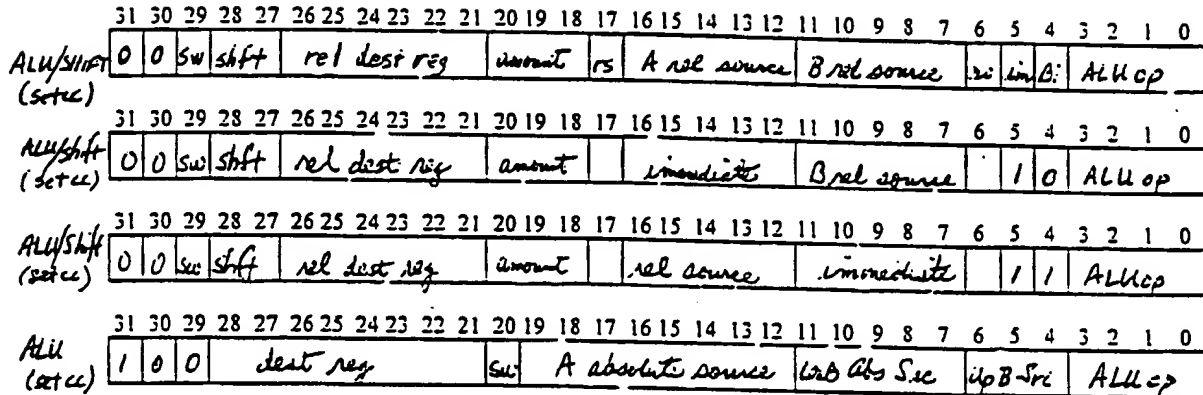 31 30 29 28 27 26 25 24 23 22 21 20 19 18 17 16 15 14 13 12 11 10 9 8 7 6 5 4 3 2 1 0
ALU/SHIFT 0 0 sw shft rel dest reg amount rs A rel source B rel source im Bi ALU op
(setcc)
31 30 29 28 27 26 25 24 23 22 21 20 19 18 17 16 15 14 13 12 11 10 9 8 7 6 5 4 3 2 1 0
ALU/shft 0 0 sw shft rel dest reg amount immediate B rel source 1 0 ALU op
(setcc)
31 30 29 28 27 26 25 24 23 22 21 20 19 18 17 16 15 14 13 12 11 10 9 8 7 6 5 4 3 2 1 0
ALU/Shift 0 0 sw shft rel dest reg amount rel source immediate 1 1 ALU op
(setcc)
31 30 29 28 27 26 25 24 23 22 21 20 19 18 17 16 15 14 13 12 11 10 9 8 7 6 5 4 3 2 1 0
ALU 1 0 0 dest reg sw A absolute source Abs Src B Src ALU op
(setcc)